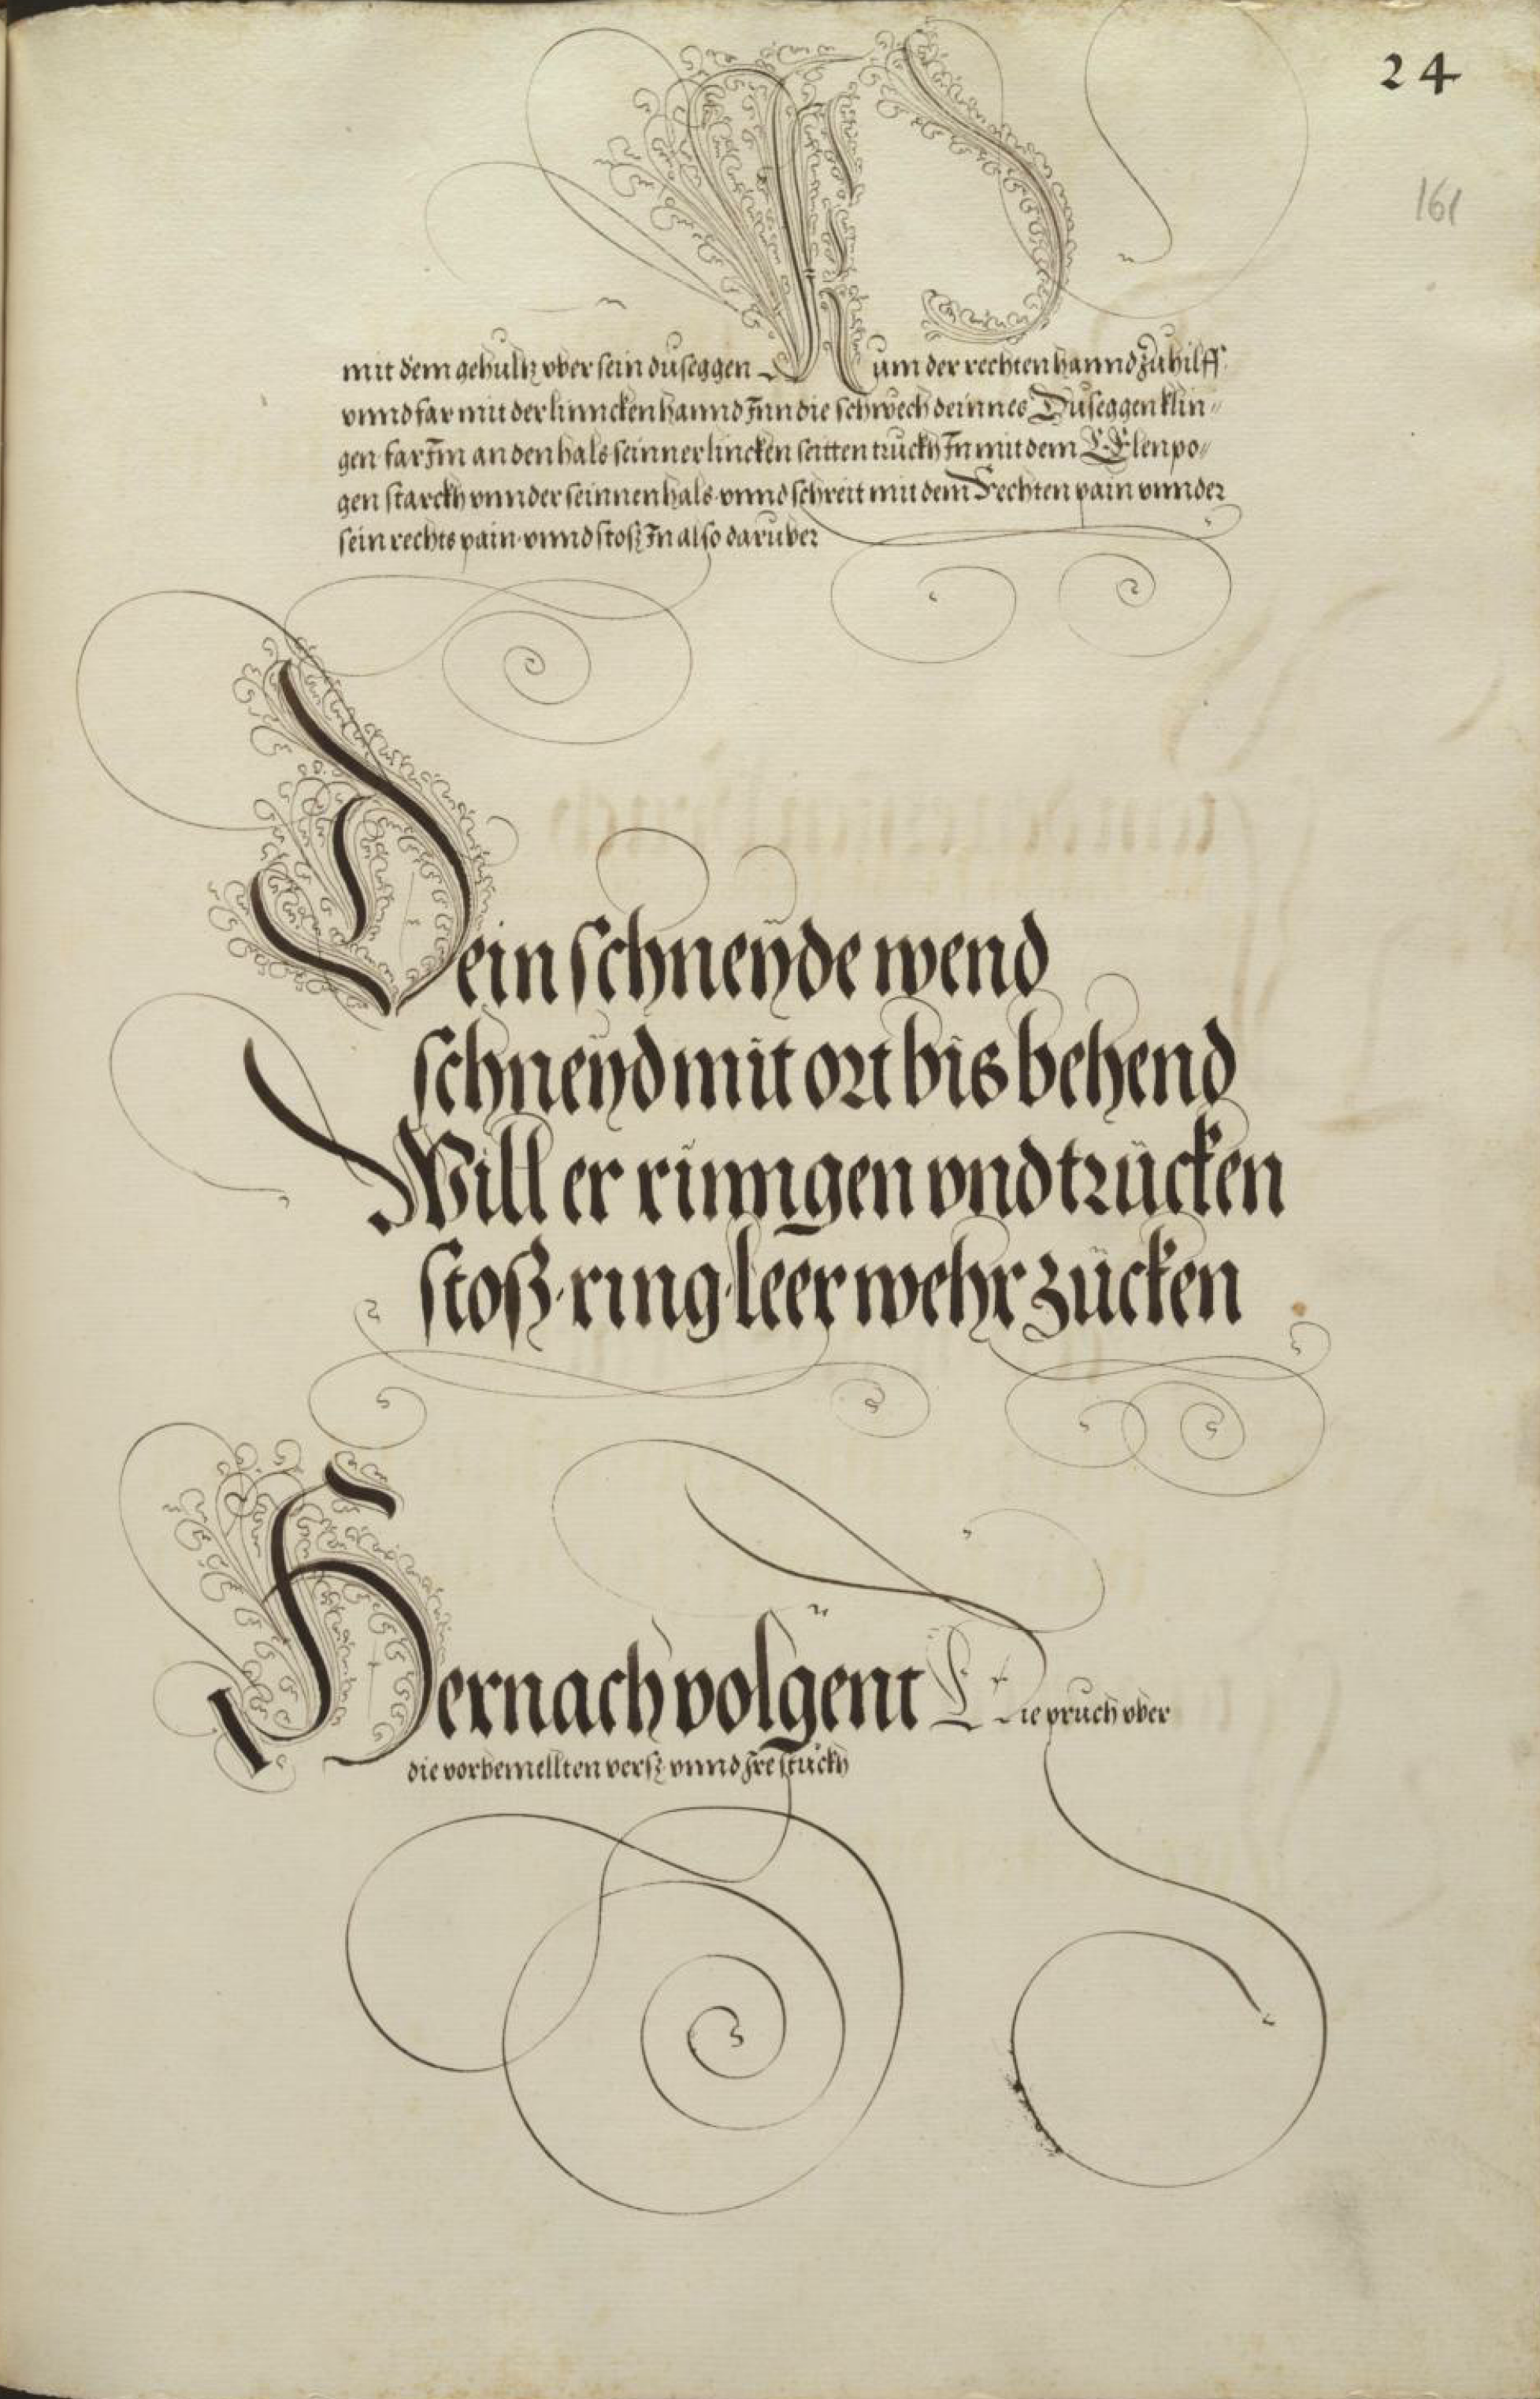 24
161
mit dem gehultz vber sein duseggen Kum der rechten hannd zu hilff
vnnd far mit der linncken hannd Inn die schwech deinnes Duseggen klin⸗
gen far Im an den hals seinner lincken seitten truckh In mit dem Elenpo⸗
gen starckh vnnder seinnen hals vnnd schreit mit dem Rechten pain vnnder
sein rechts pain vnnd stosz In also daruber
Dein schneyde wend
schneyd mit ort bis behend
Will er rinngen vnd trücken
stosz ring leer wehr zücken
Hernach volgent Die pruch vber
die vorbemellten versz vnnd Ire stuckh